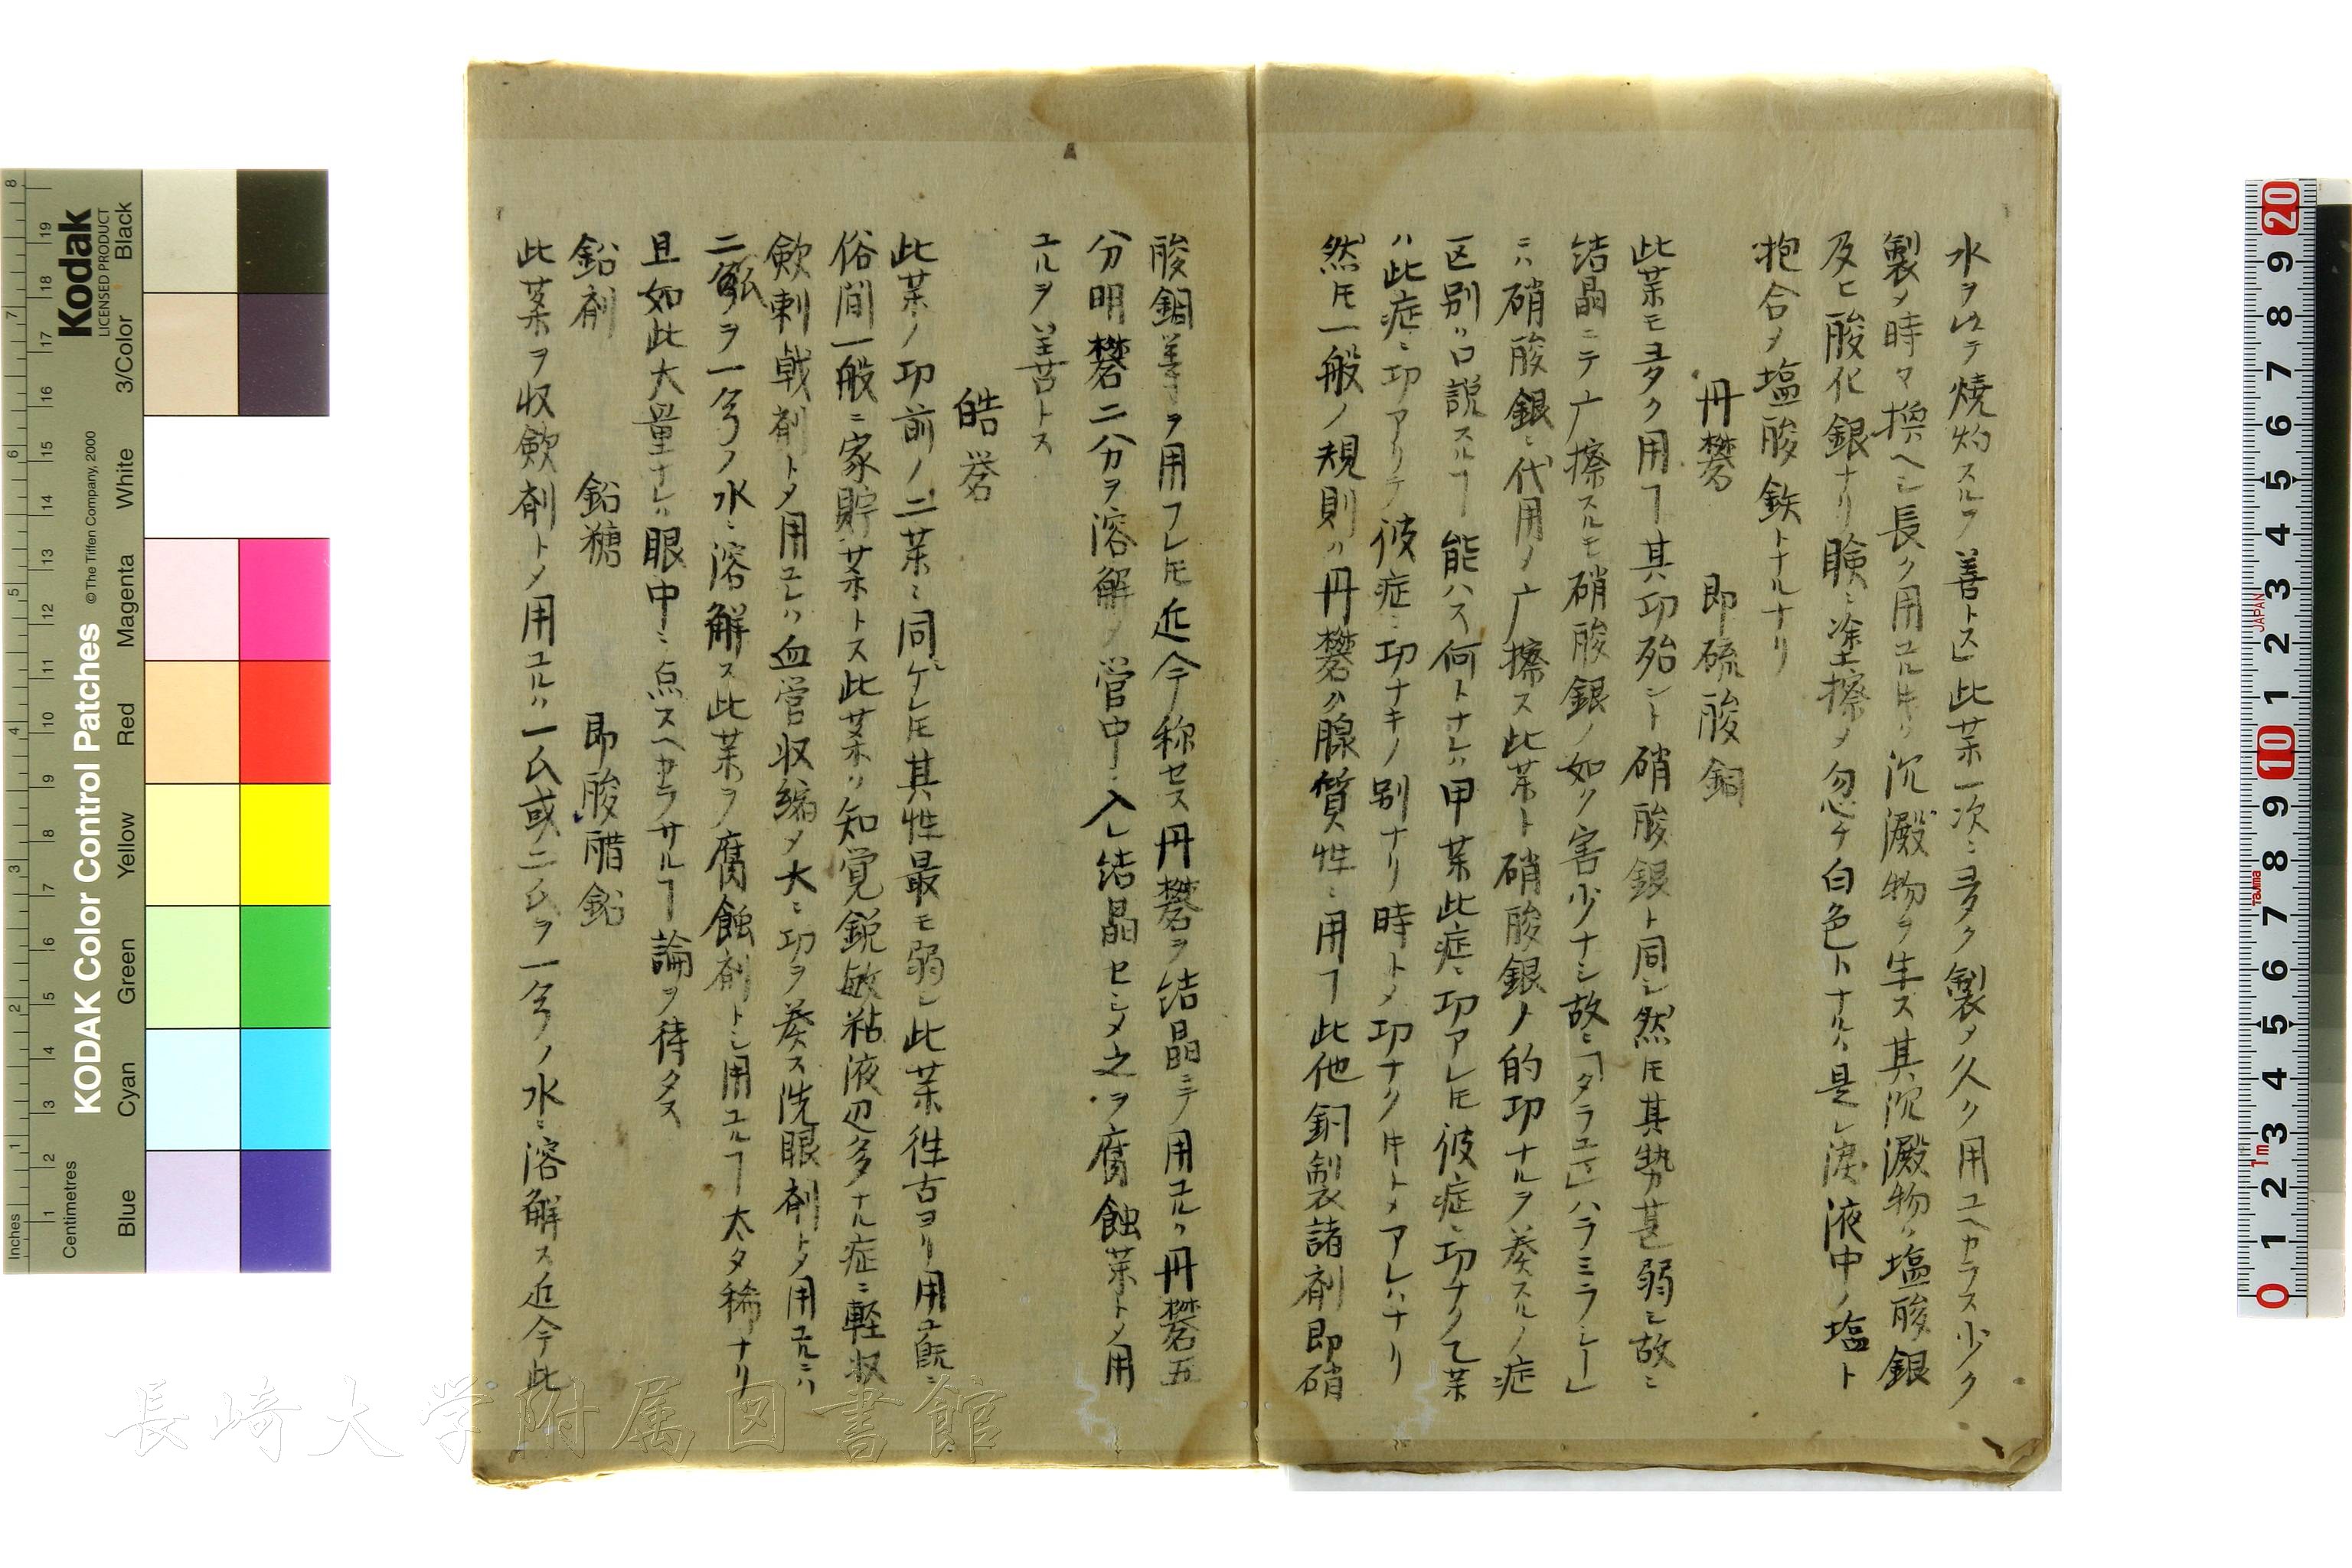 水ヲ以テ焼灼スルヲ善トス」此茉一次ニ多ク製メ久ク用ユヘカラス少ク
製メ時々換ヘシ長ク用ユル𪜈ハ沉澱物ヲ生ス其沉澱物ハ塩酸銀
及ヒ酸化銀ナリ瞼ニ塗擦メ忽チ白色トナルハ是レ涙液中ノ塩ト
抱合メ塩酸鉄トナルナリ
丹礬 即硫酸銅
此茉モ多ク用ヿ其功殆ント硝酸銀ト同シ然𪜈其勢甚弱シ故ニ
结晶ニテ广擦スルモ硝酸銀ノ如ク害少ナシ故ニ「タラエ」ハラミラシー」
ニハ硝酸銀ニ代用メ广擦ス此茉ト硝酸銀ノ的功ナルヲ養スルノ症
区別ハ口説スルヿ能ハス何トナレハ甲茉此症ニ功アレ𪜈彼症ニ功ナク乙茉
ハ此症ニ功アリテ彼症ニ功ナキノ別ナリ時トメ功ナク𪜈トメアレハナリ
然𪜈一般ノ規則ハ丹礬ハ腺質性ニ用ヿ此他銅製諸剤即硝
酸銅等ヲ用フレ𪜈近今称セス丹礬ヲ结晶ニテ用ユルハ丹礬五
分明礬二分ヲ溶解メ管中ニ入レ结晶セシメ之ヲ腐蝕茉トメ用
ユルヲ善トス
皓礬
此茉ノ功前ノ二茉ニ同ケレ𪜈其性最モ弱シ此茉徃古ヨリ用ユ既ニ
俗間一般ニ家貯茉トス此茉ハ知覚鋭敏粘液辺多ナル症ニ軽収
歛刺戟剤トメ用ユレハ血管収縮メ大ニ功ヲ養ス洗眼剤トメ用ユルニハ
二瓜ヲ一ヲノ水ニ溶解ス此茉ヲ腐蝕剤トシ用ユルヿ太タ稀ナリ
且如此大量ナレハ眼中ニ点スヘカラサルヿ論ヲ待タス
鉛剤 鉛糖 即酸醋鉛
此茉ヲ収歛剤トメ用ユルハ一氏或二氏ヲ一ヲノ水ニ溶解ス近今此
長崎大学附属図書館
Kodak
LICENSED PRODUCT
KODAK Color Control Patches
© The Tiffen Company, 2000
Black
3/Color
White
Magenta
Red
Yellow
Green
Cyan
Blue
Inches
Centimetres
JAPAN
Tajima
1m